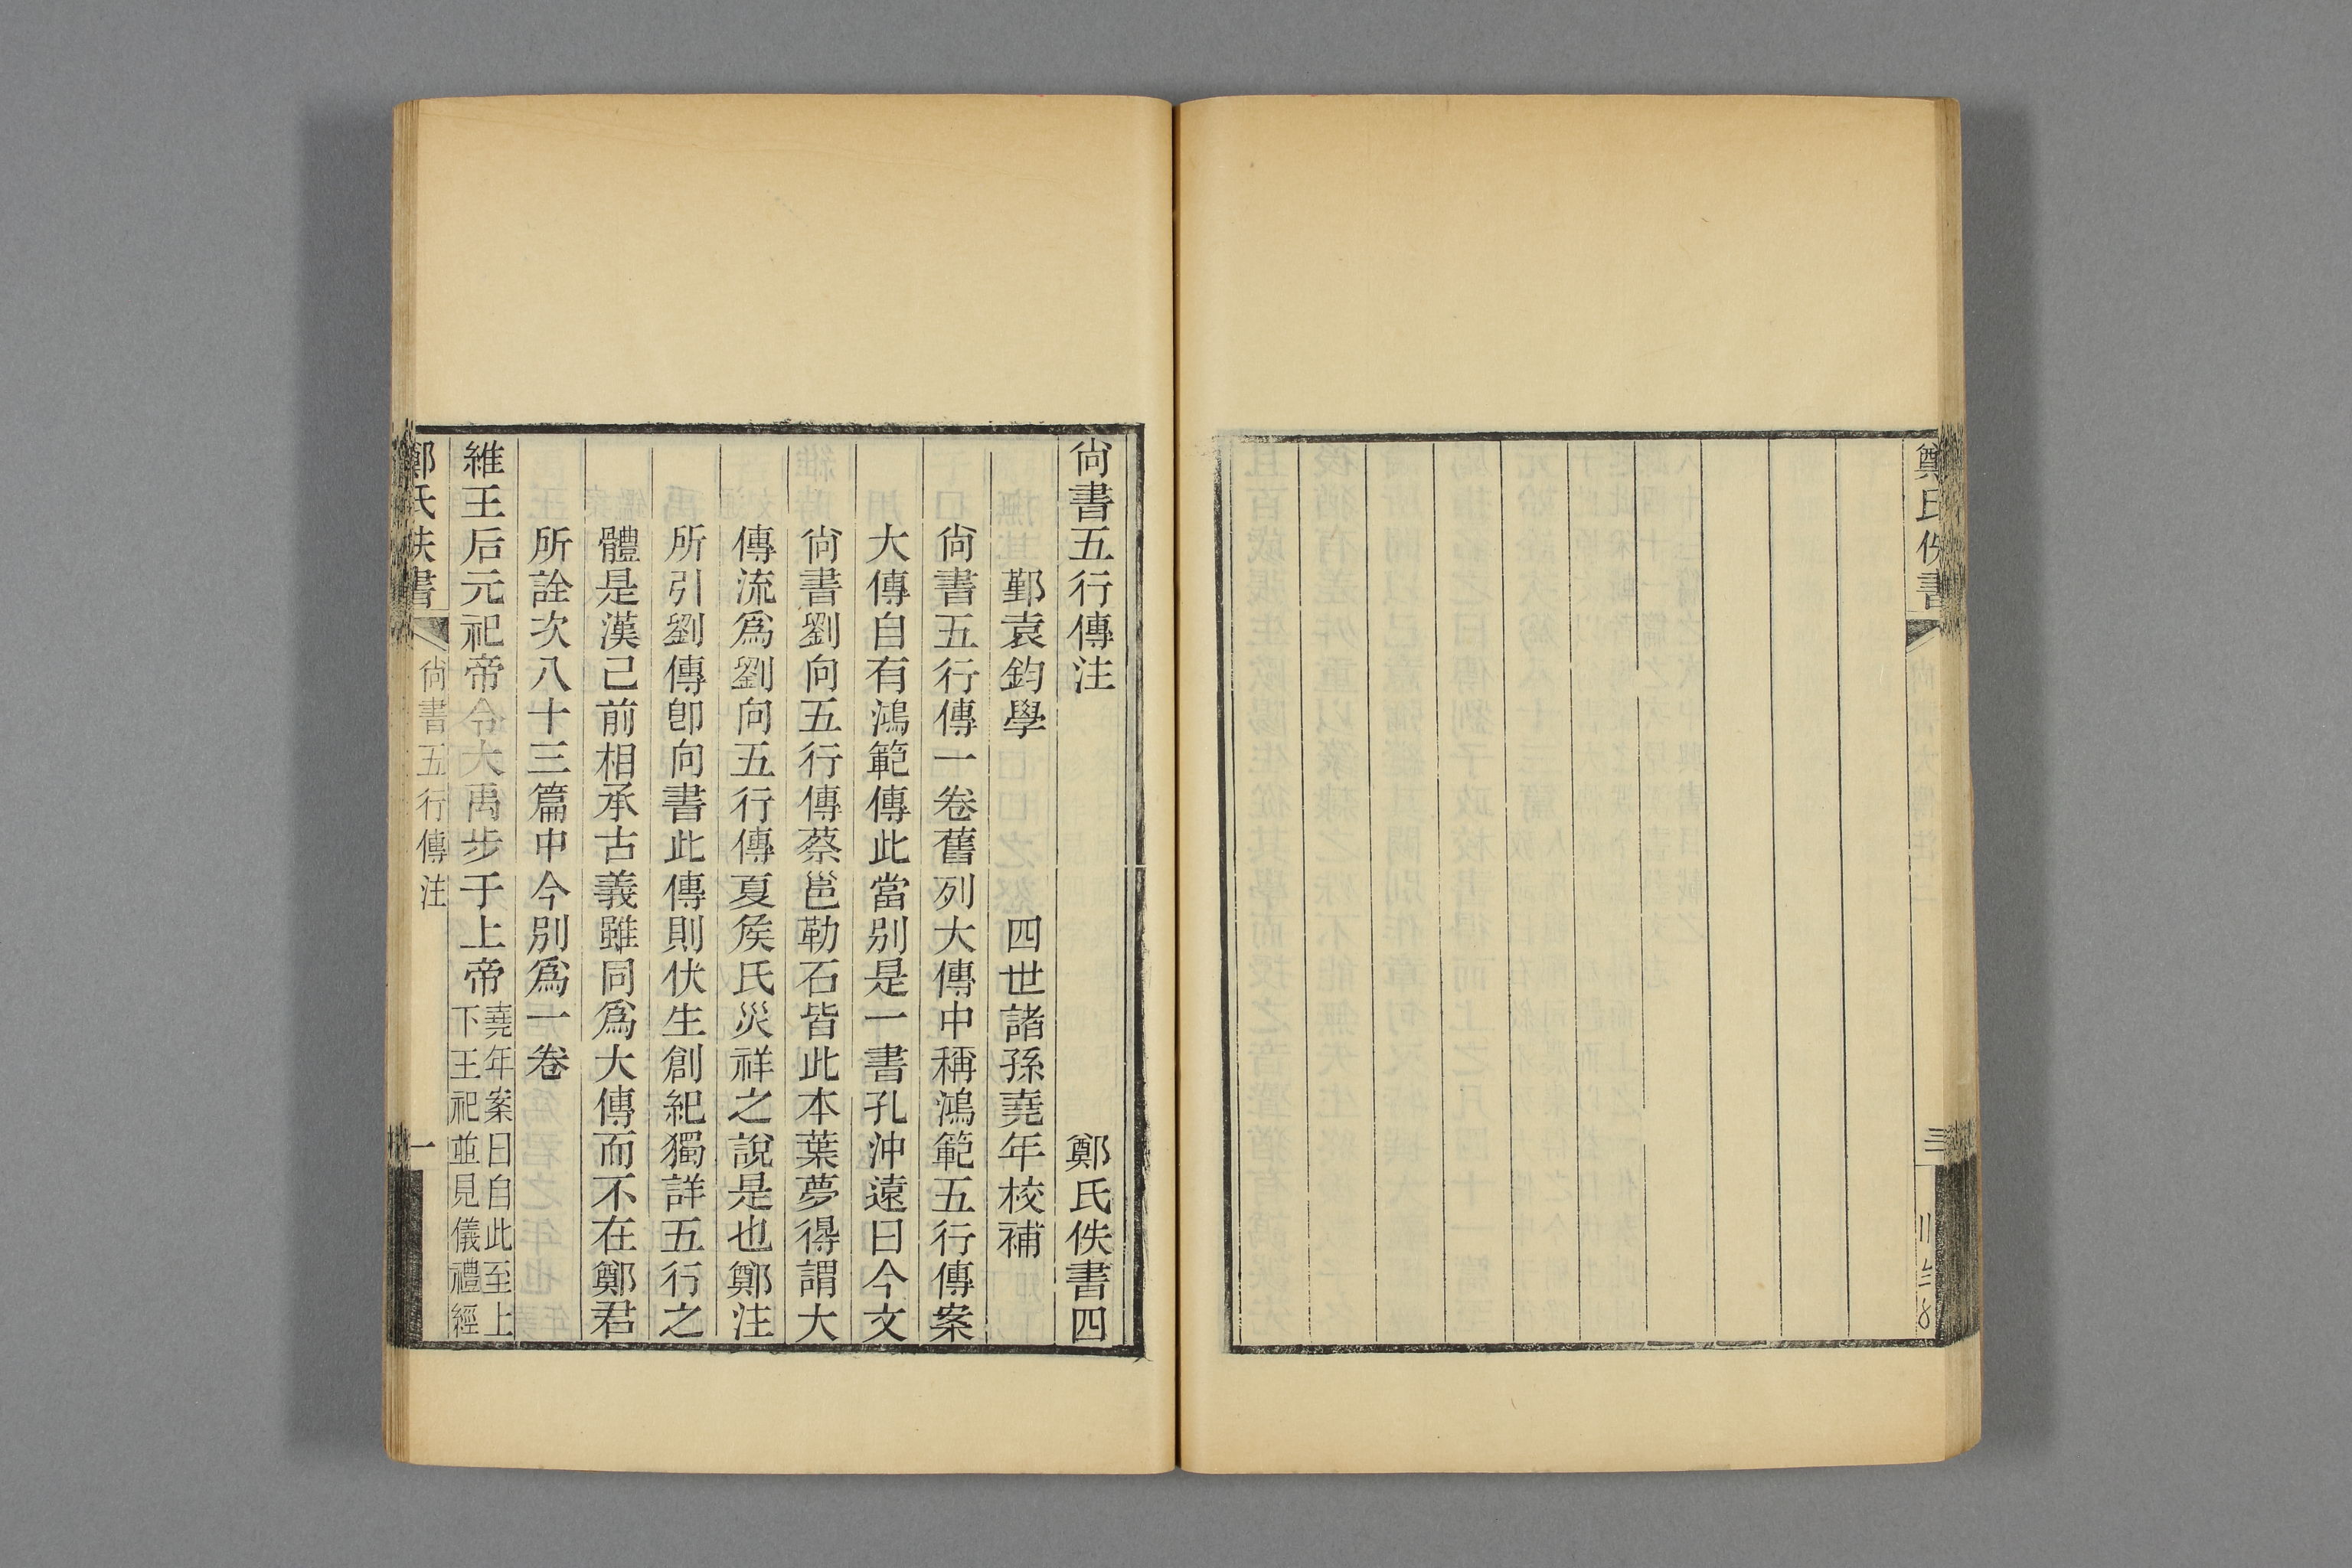 鄭氏佚書
三
尙書五行傳注 鄭氏佚書四
鄞袁鈞學 四世諸孫堯年校補
尙書五行傳一卷舊列大傳中稱鴻範五行傳案
大傳自有鴻範傳此當別是一書孔沖遠曰今文
尙書劉向五行傳蔡邕勒石皆此本葉夢得謂大
傳流爲劉向五行傳夏矦氏災祥之說是也鄭注
所引劉傳卽向書此傳則伏生創紀獨詳五行之
體是漢已前相承古義雖同爲大傳而不在鄭君
所詮次八十三篇中今別爲一卷
維王后元祀帝令大禹步于上帝堯年案曰自此至上
下王祀並見儀禮經
鄭氏佚書
尙書五行傳注
一